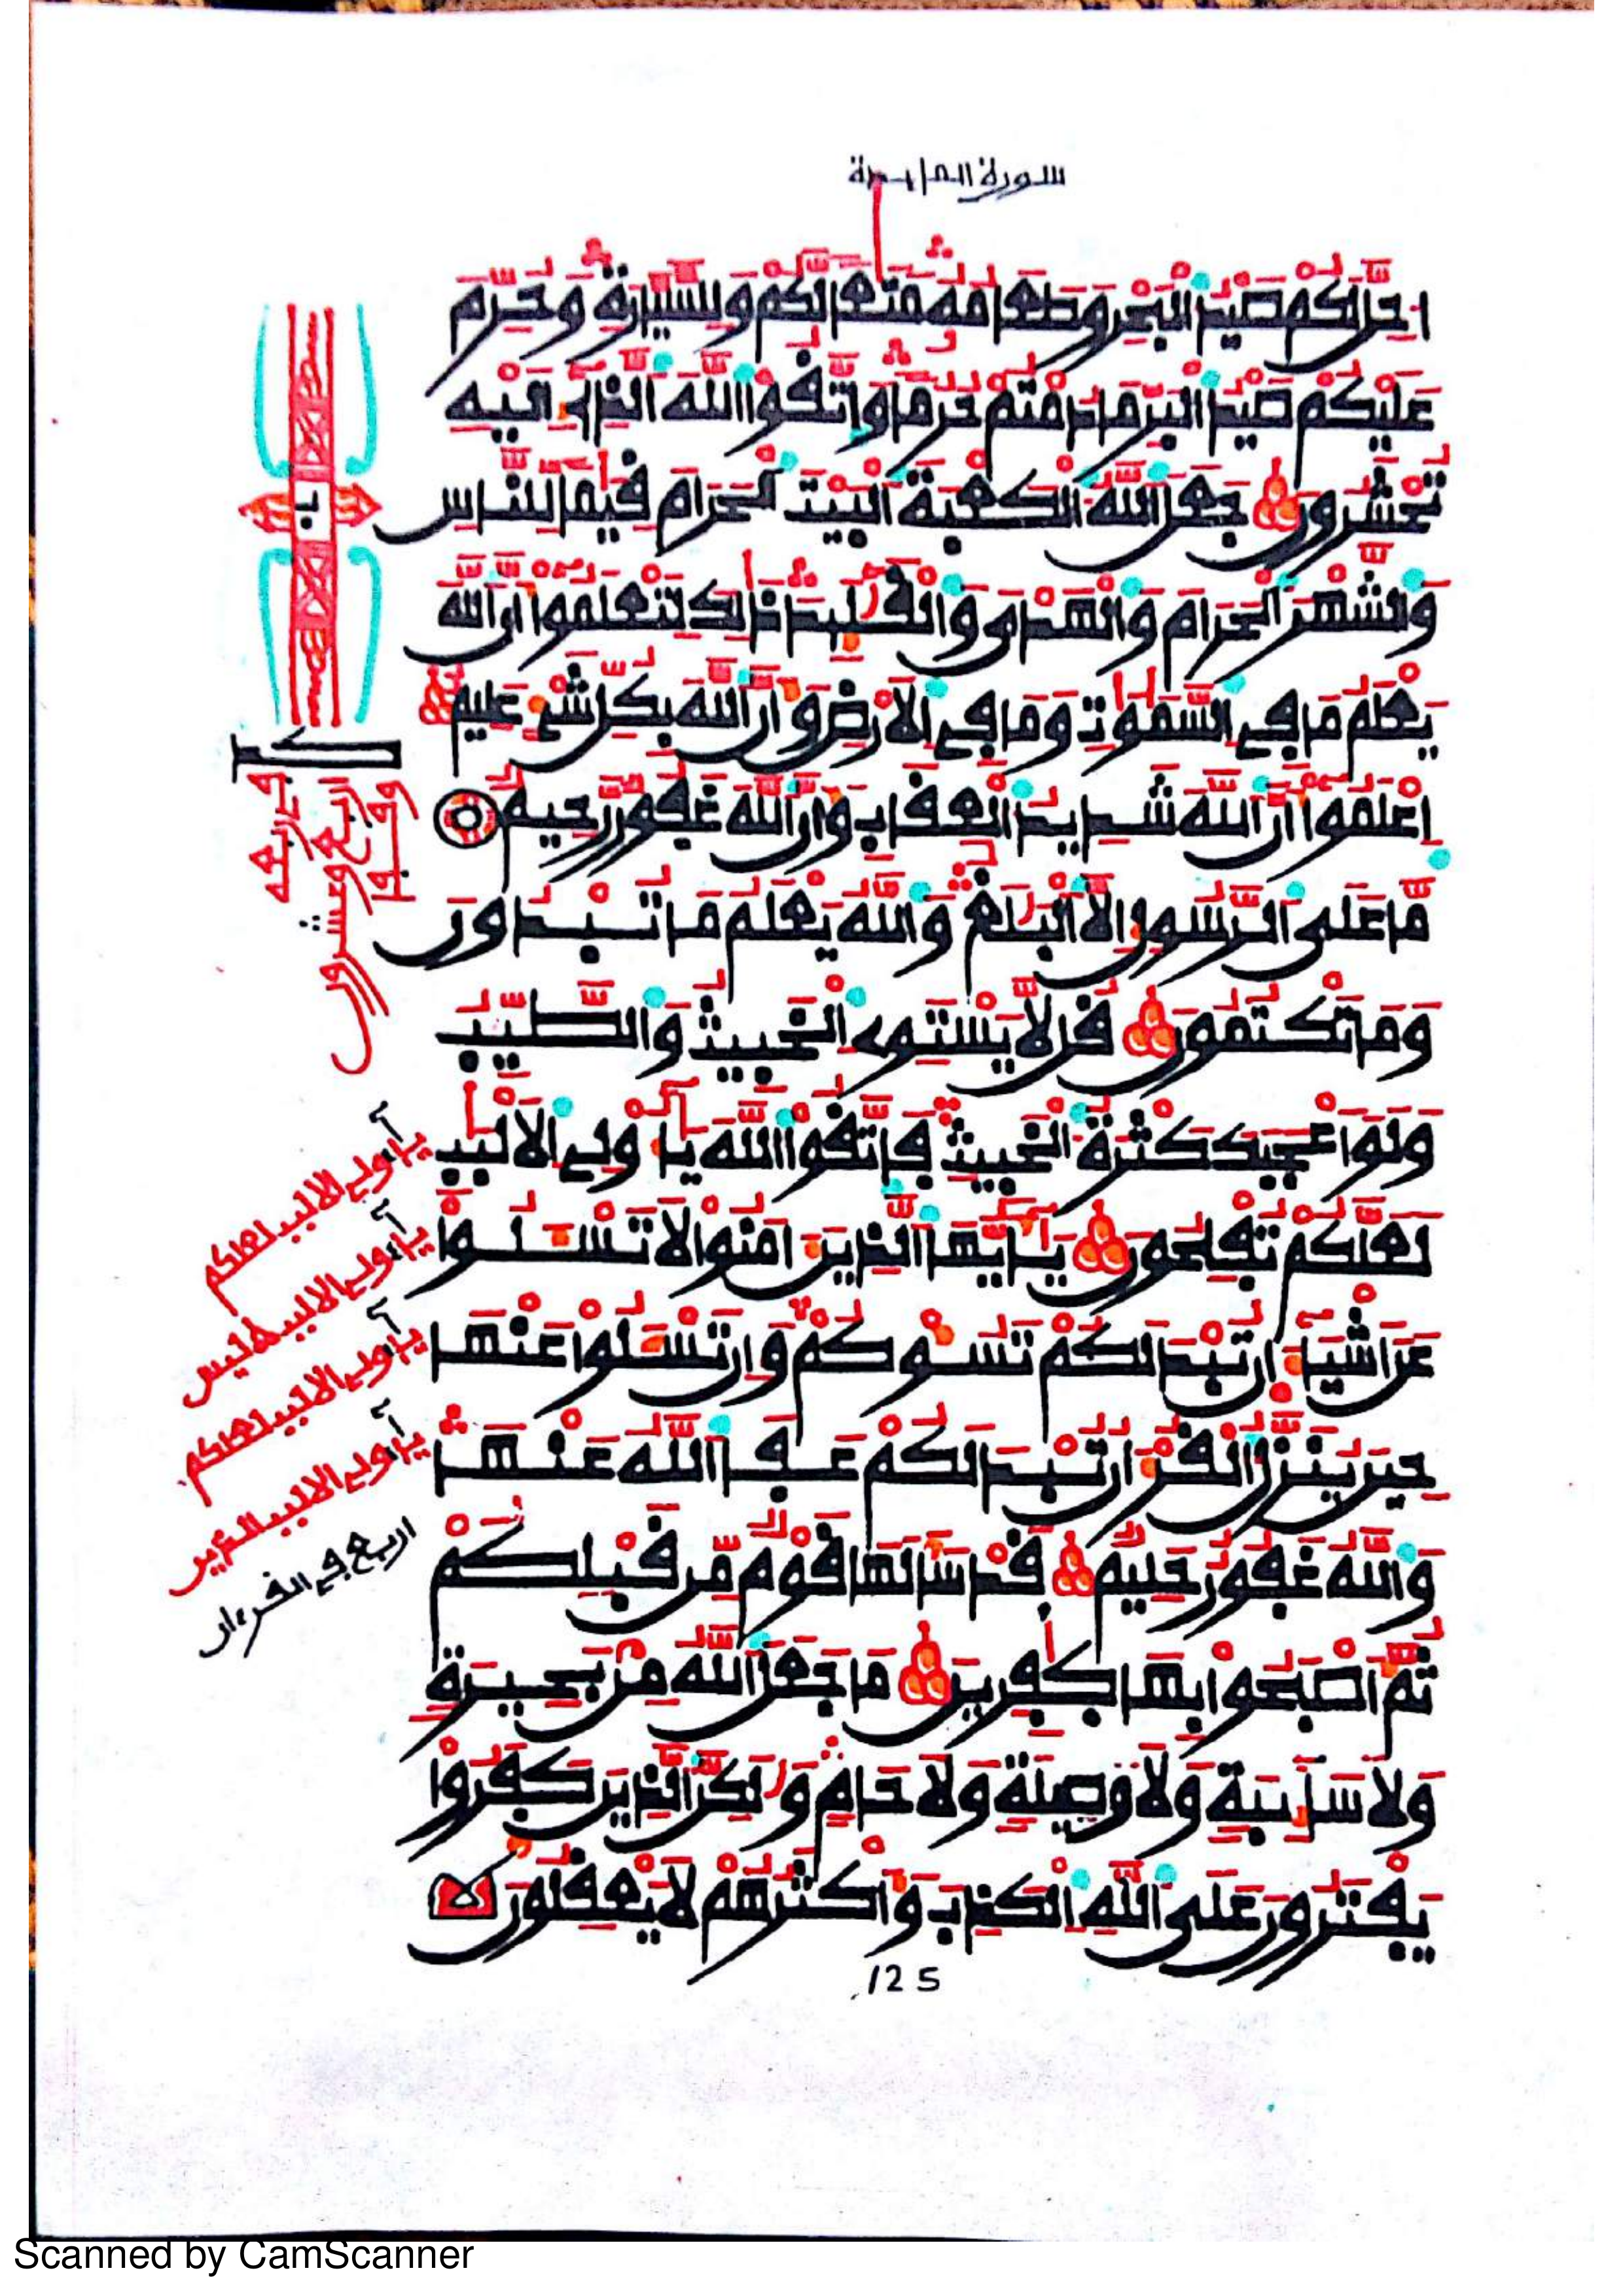 سورة المايدة
احل لكم صيد البحر وطعامه متعا لكم وللسيارة وحرم
عليكم صيد البر ما دمتم حرما واتقوا الله الذي إليه
تحشرون جعل الله الكعبة البيت الحرام قيما للناس
والشهر الحرام والهدي والقليد ذلك لتعلموا أن الله
يعلم ما في السموت وما في الارض وأن الله بكل شيء عليم
اعلموا أن الله شديد العقاب وأن الله غفور رحيم
ما على الرسول إلا البلغ والله يعلم ما تبدون
وما تكتمون قل لا يستوي الخبيث والطيب
ولو اعجبك كثرة الخبيث فاتقوا الله يأولي الالبب
لعلكم تفلحون يأيها الذين امنوا لا تسلوا
عن اشياء ان تبد لكم تسوكم وان تسلوا عنها
حين ينزل القرءان تبد لكم عفا الله عنها
والله غفور حليم قد سألها قوم من قبلكم
ثم اصبحوا بها كفرين ما جعل الله من بحيرة
ولا سايبة ولا وصيلة ولا حام ولكن الذين كفروا
يفترون على الله الكذب وأكثرهم لا يعقلون
125
ب
كد
وقفوا
اربع وعشرون
في ربعه
يأولي الالبب لعلكم
يأولي الالبب ليس
يأولي الالبب لعلكم
يأولي الالبب الذين
اربع في القرءان
Scanned by CamScanner